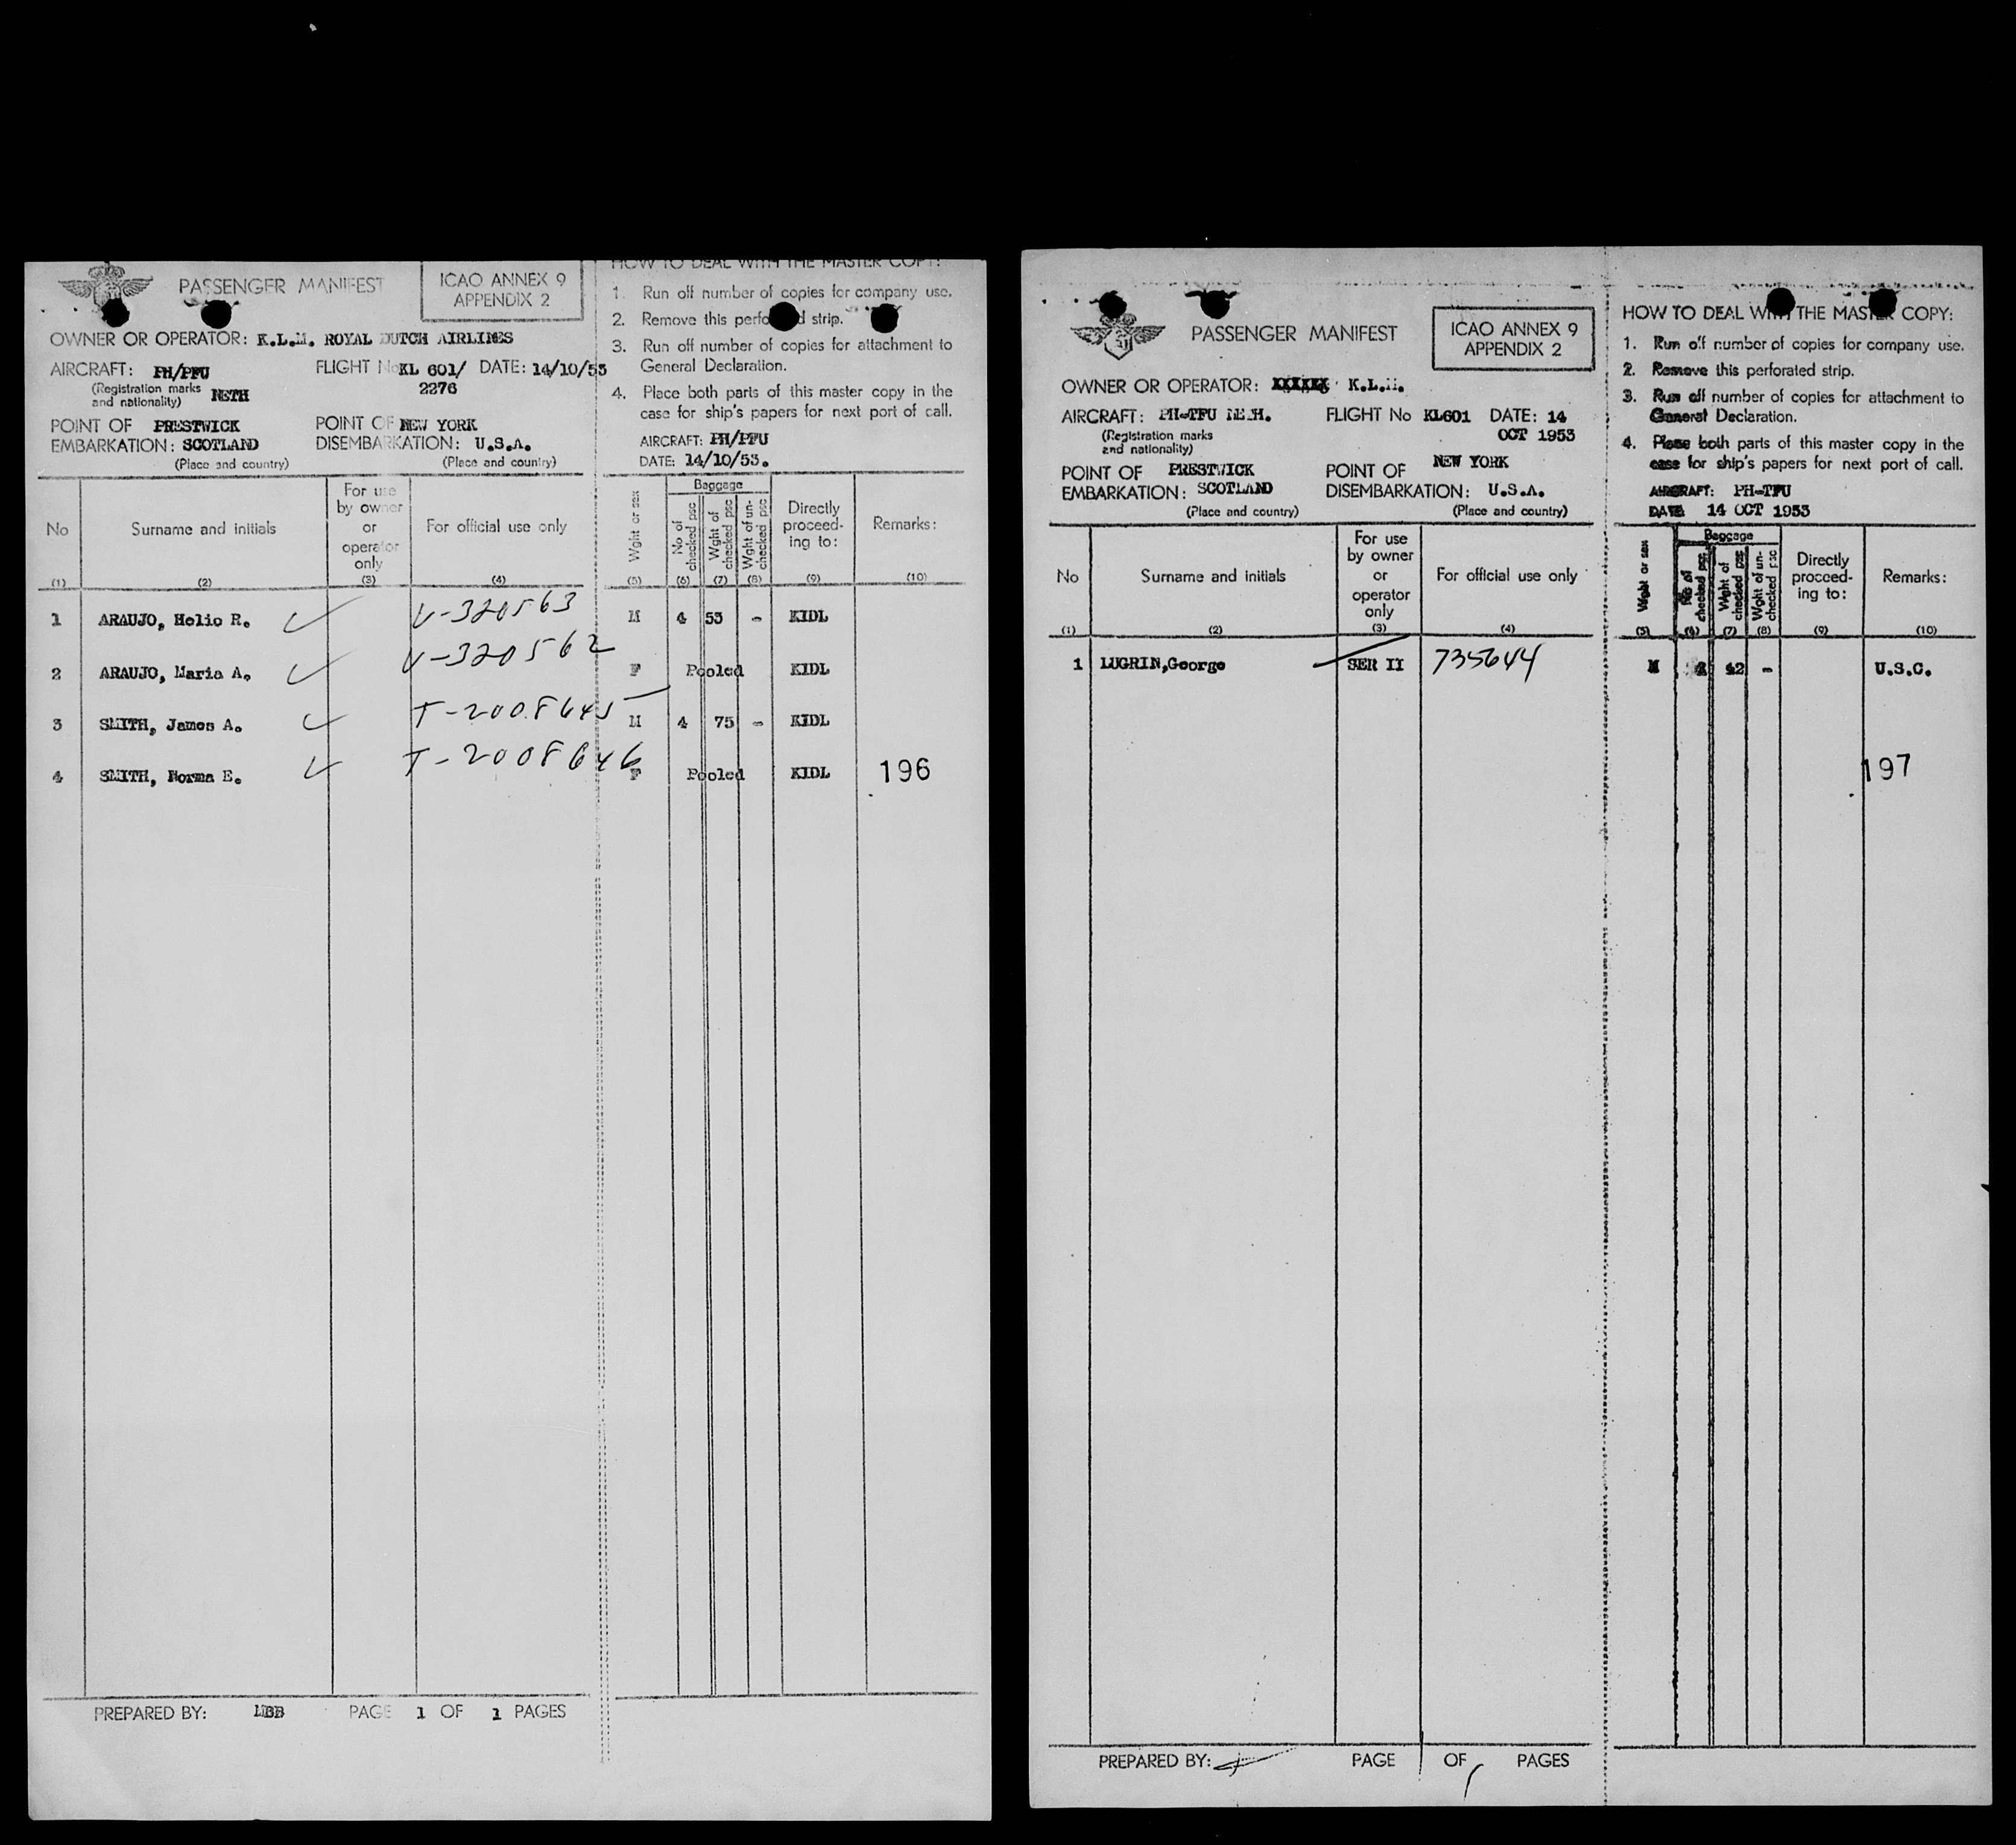 PASSENGER MANIFEST
ICAO ANNEX 9
APPENDIX 2
OWNER OR OPERATOR: K.L.M. ROYAL DUTCH AIRLINES
AIRCRAFT: PH/PFU FLIGHT No KL 601/ DATE: 14/10/53
(Registration marks NETH 2276
and nationality)
POINT OF PRESTWICK POINT OF NEW YORK
EMBARKATION: SCOTLAND DISEMBARKATION: U.S.A.
(Place and country) (Place and country)
HOW TO DEAL WITH THE MASTER COPY:
1. Run off number of copies for company use.
2. Remove this perfo d strip.
3. Run off number of copies for attachment to
General Declaration.
4. Place both parts of this master copy in the
case for ship's papers for next port of call.
AIRCRAFT: PH/PFU
DATE: 14/10/53.
No
(1)
Surname and initials
(2)
For use
by owner
or
operator
only
(3)
For official use only
(4)
Wght or sex
(5)
Baggage
No of
checked psc
(6)
Wght of
checked psc
(7)
Wght of un-
checked psc
(8)
Directly
proceed-
ing to:
(9)
Remarks:
(10)
1 ARAUJO, Helio R. V-320563 M 4 53 - KIDL
2 ARAUJO, Maria A. V-320562 F Pooled KIDL
3 SMITH, James A. T-2008645 M 4 75 - KIDL
4 SMITH, Norma E. T-2008646 F Pooled KIDL 196
PREPARED BY: PAGE 1 OF 1 PAGES
PASSENGER MANIFEST
ICAO ANNEX 9
APPENDIX 2
OWNER OR OPERATOR: XXXXXX K.L.M.
AIRCRAFT: PH-TFU NETH. FLIGHT No KL601 DATE: 14
(Registration marks OCT 1953
and nationality)
POINT OF PRESTWICK POINT OF NEW YORK
EMBARKATION: SCOTLAND DISEMBARKATION: U.S.A.
(Place and country) (Place and country)
HOW TO DEAL WITH THE MASTER COPY:
1. Run off number of copies for company use.
2. Remove this perforated strip.
3. Run off number of copies for attachment to
General Declaration.
4. Place both parts of this master copy in the
case for ship's papers for next port of call.
AIRCRAFT: PH-TFU
DATE 14 OCT 1953
No
(1)
Surname and initials
(2)
For use
by owner
or
operator
only
(3)
For official use only
(4)
Wght or sex
(5)
Baggage
No of
checked psc
(6)
Wght of
checked psc
(7)
Wght of un-
checked psc
(8)
Directly
proceed-
ing to:
(9)
Remarks:
(10)
1 LUGRIN,George SER II 735644 M 2 42 - U.S.C.
197
PREPARED BY: PAGE 1 OF 1 PAGES